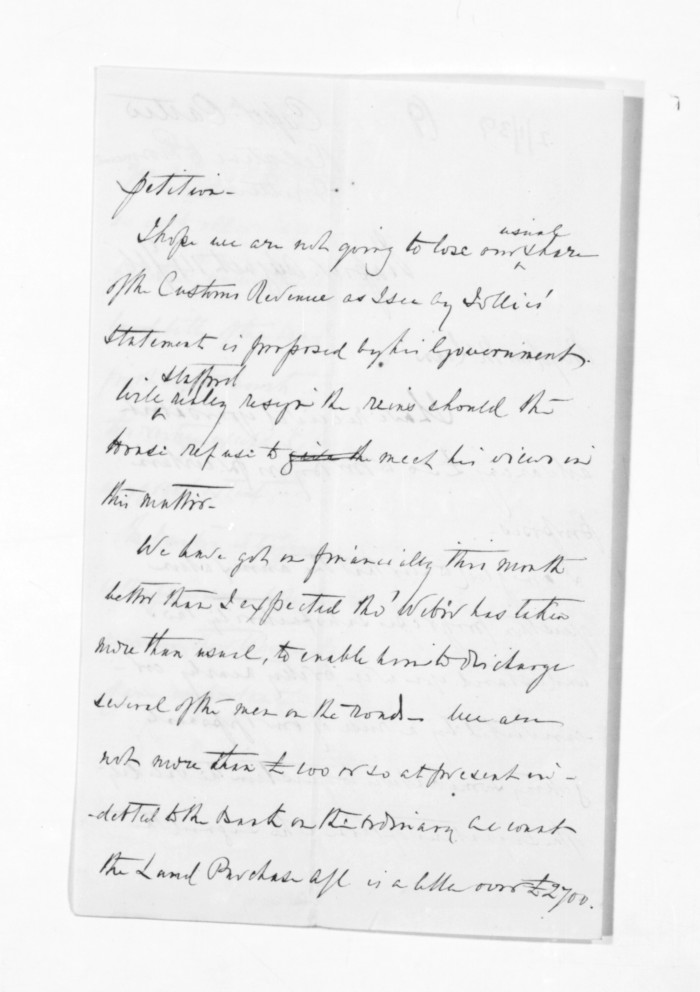 petition_
I hope we are not going to lose our usual share
of the Customs Revenue as I see by Jollies'
statement is proposed by his Government.
Will Stafford really resign the reins should the
House refuse to give the meet his views in
this matter_
We have got on financially this month
better than I expected tho' Weber has taken
more than usual, to enable him to discharge
several of the men on the roads_ We are
not more than £100 or so at present in-
-debted to the Bank on the ordinary account
the Land Purchase a/c is a little over £2700.